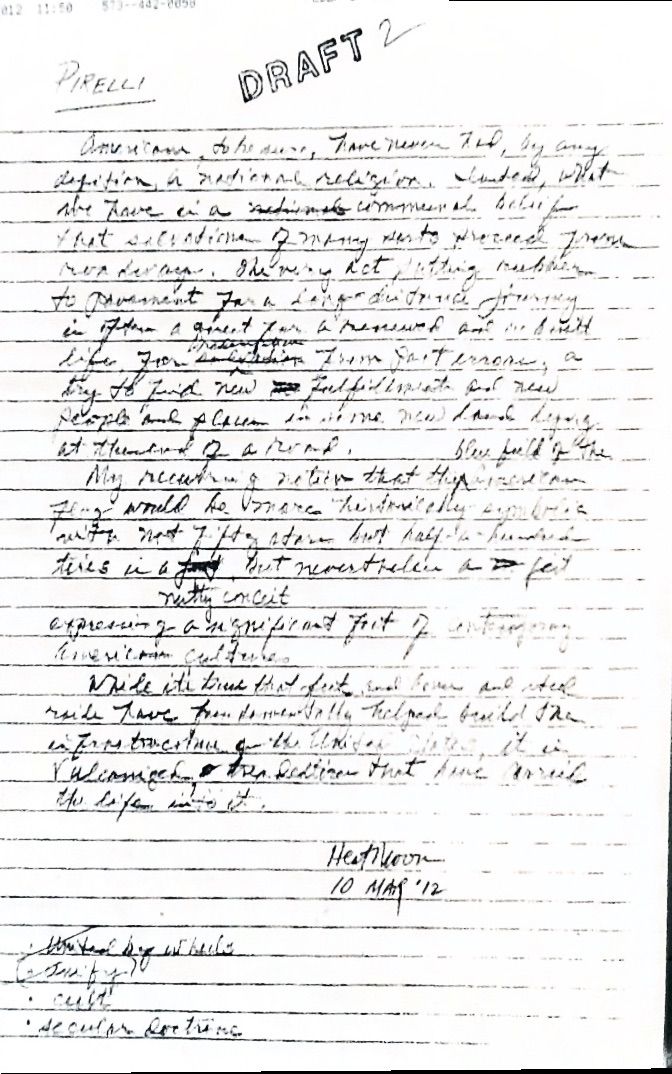 2012 11:50 573--442-0050
DRAFT 2
PIRELLI
Americans, to be sure, have never had, by any
defition, a national religion. Instead, what
we have is a national communal belief
that salvations of many sorts proceed from
roadways. The very act putting rubber
to pavement for a long-distance journey
is often a quest for a renewed and rebuilt
redemption
life, for salvation from past errors, a
try to find new fulfillments and new
people and places in some new land lying
at the end of a road. blue field of the
My recurring notion that the American
flag would be more historically symbolic
with not fifty stars but half-a-hundred
tires is a but nevertheless a
nutty conceit
expressing a significant fact of contemporary
American culture.
While it's true that feet and hooves and steel
rails have fundamentally helped build the
infrastructure of the United States, it is
Vulcanized that have carried
the life into it.
Heat Moon
10 MAR '12
· United by Wheels
(· )
· cult
· secular doctrine